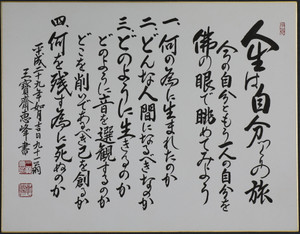 人生は自分つくりの旅
今の自分ともう一人の自分を
佛の眼で眺めてみよう
一、何の為に生まれたのか
二、どんな人間になるべきなのか
三、どのように生きるのか
どのように音を選観するのか
どこを削いであるべき己を創るか
四、何を残す為に死ねるのか
平成二十九年如月吉日九十一翁
玉寶齋惠峰書